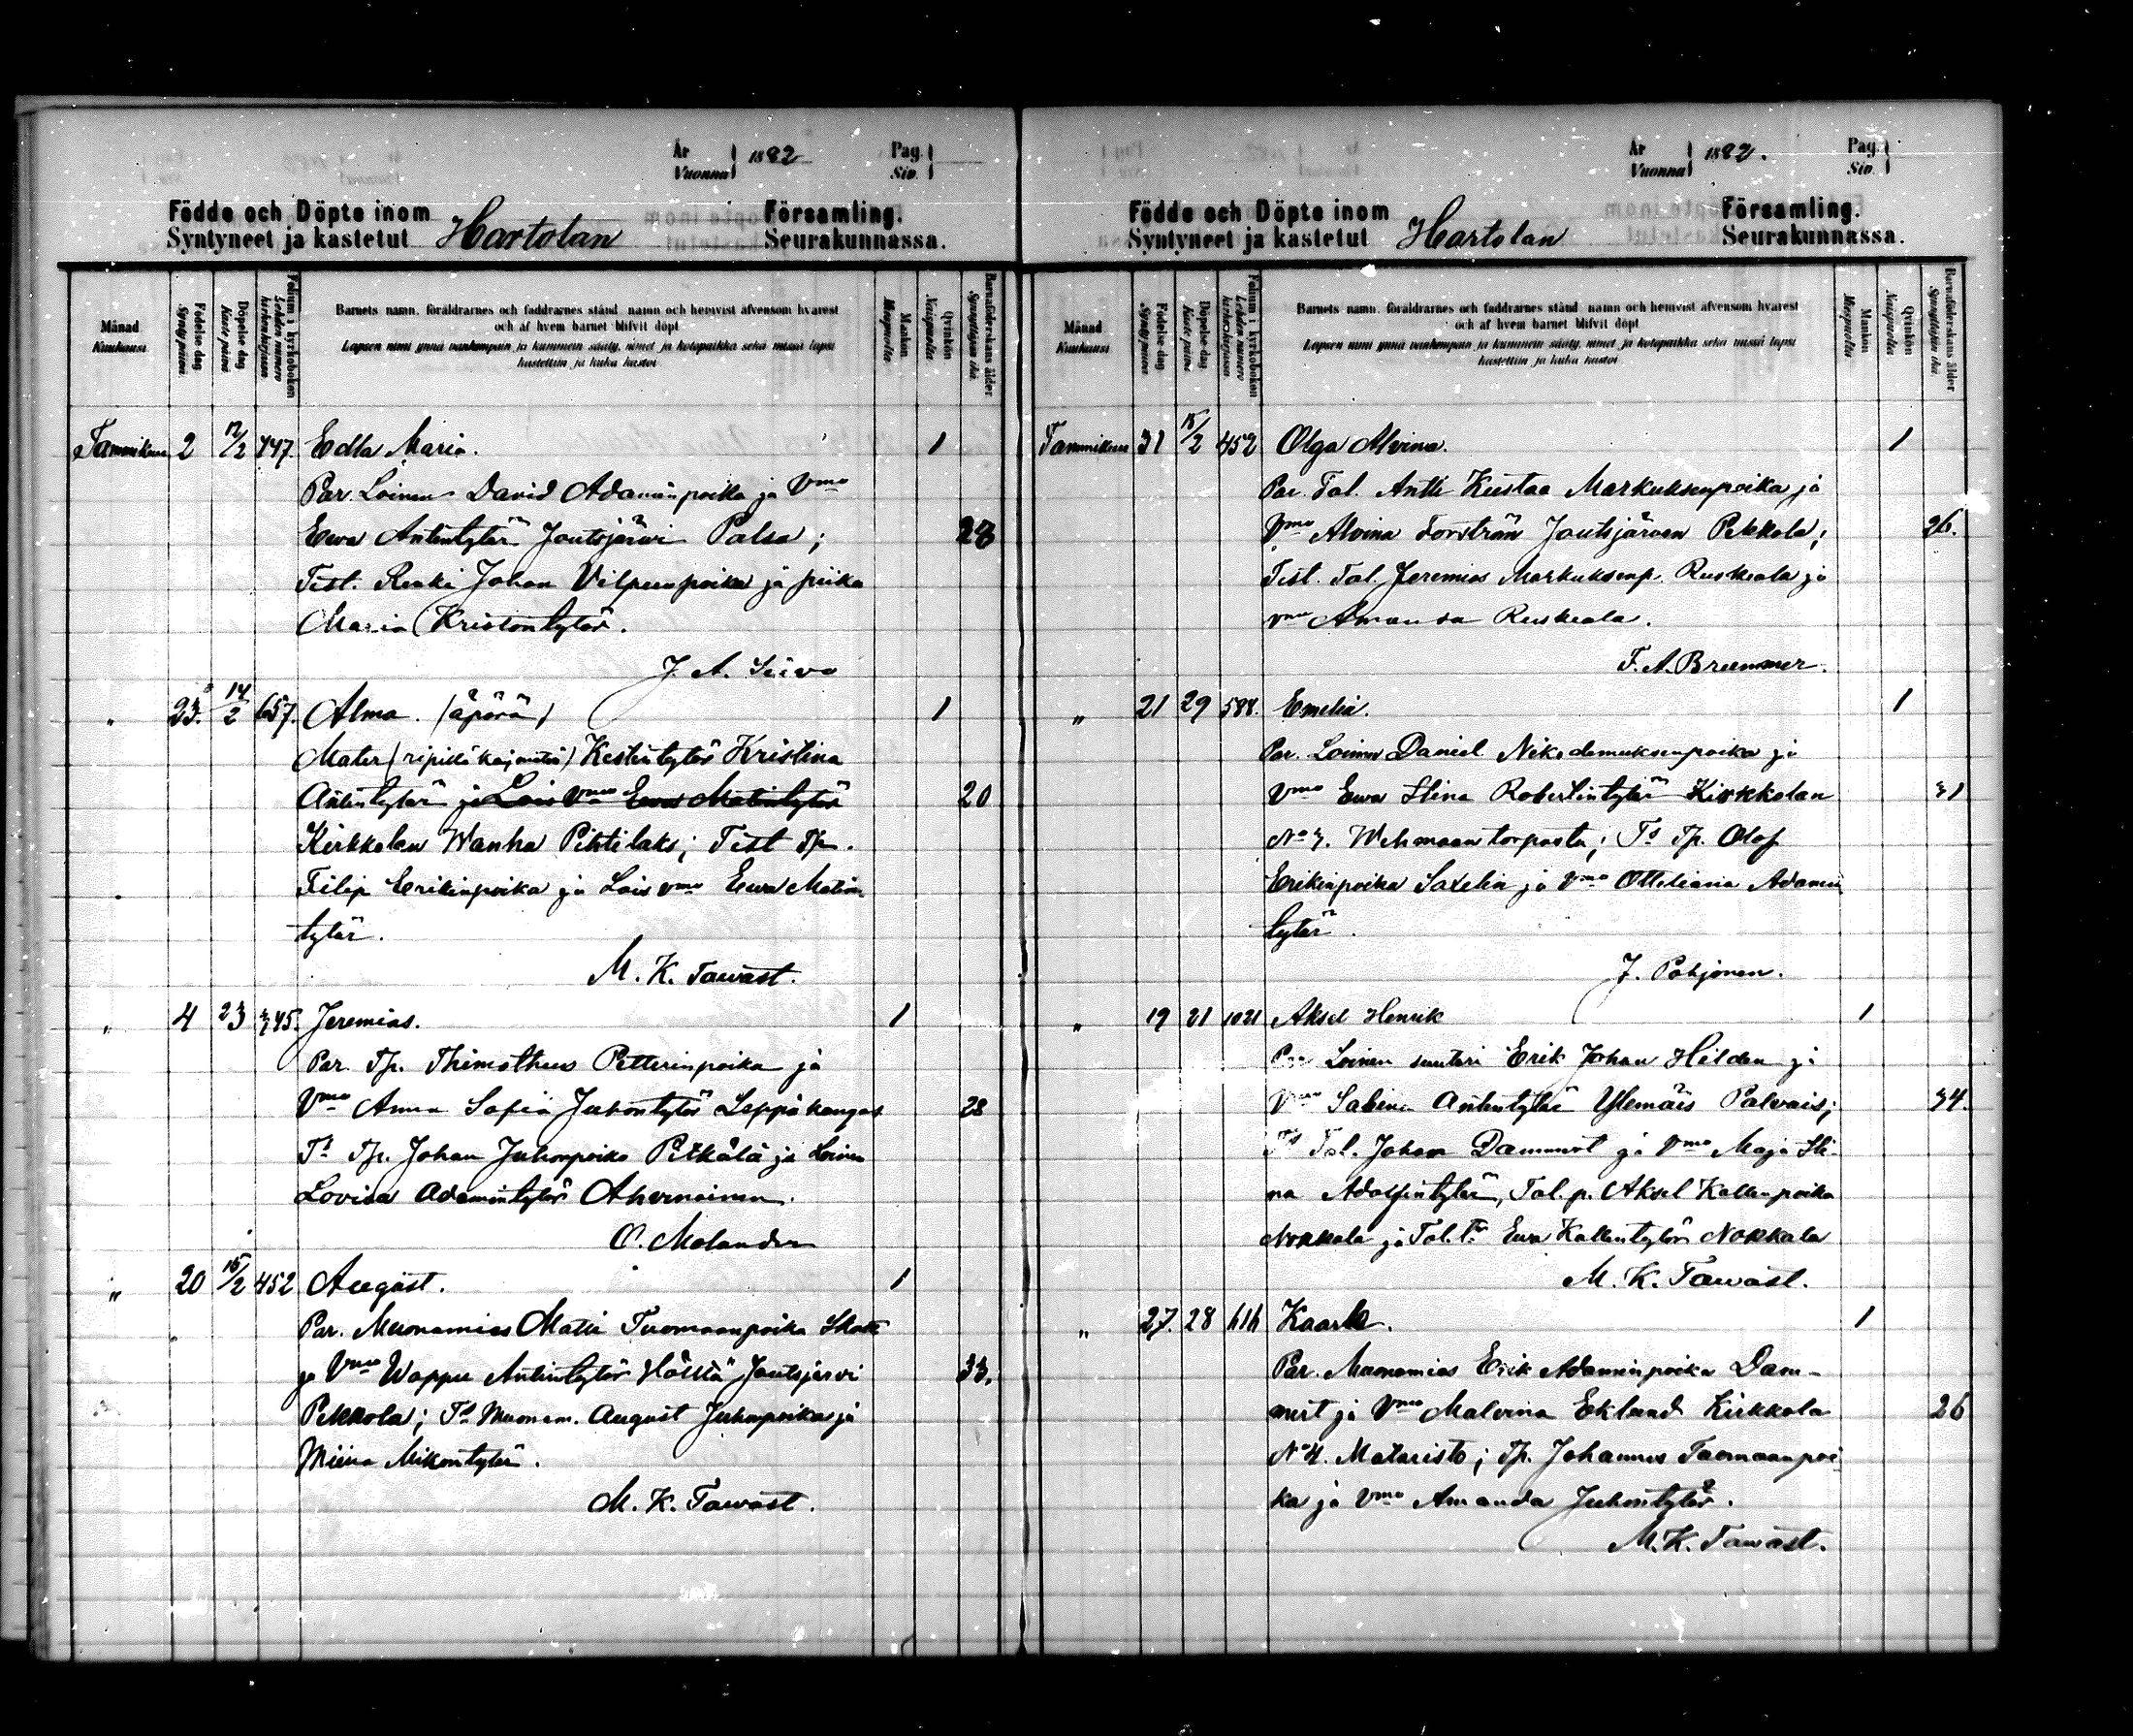 År
Vuonna 1882 Pag.
Siv.
Födde och Döpte inom
Syntyneet ja kastetut Hartolan Församling.
Seurakunnassa.
Månad
Kuukausi
Födelse dag
Synty päivä
Döpelse dag
Kaste päivä
Folium i kyrkoboken
Lehden numero
kirkonkirjassa
Barnets namn, föräldrarnes och faddrarnes stånd namn och hemvist äfvensom hvarest
och af hvem barnet blifvit döpt
Lapsen nimi ynnä vanhempain ja kummein sääty, nimet ja kotopaikka sekä missä lapsi
kastettiin ja kuka kastoi
Mankön
Miespuolia
Qvinkön
Naispuolia
Barnaföderskans ålder
Synnyttäjän ikä
Tammikuu 2 12/2 447 Edla Maria. 1
Par. Loinen David Adaminpoika ja Vmo
Ewa Antintytär Joutsjärwi Palsa; 28
Test. Renki Johan Vilpunpoika ja piika
Maria Kristontytär.
J. A. Siivo
" 23. 14/2 657. Alma. (äpärä) 1
Mater (ripillä käymätön) Kestintytär Kristina
Antintytär ja Lois Vmo Ewa Matintytär 20
Kirkkolan Wanha Pihtilaks; Test Tp.
Filip Erikinpoika ja Lois vmo Ewa Matin
tytär.
M. K. Tawast.
" 4 23 345. Jeremias. 1
Par. Tp. Thimotheus Petterinpoika ja
Vmo Anna Sofia Juhontytär Leppäkangas 28
Ts Tp. Johan Juhonpoika Pitkälä ja Loinen
Lovisa Adamintytär Ahvenainen.
O. Molander
" 20 15/2 452 August. 1
Par. Muonamies Matti Tuomaanpoika Skott
ja Vmo Wappu Antintytär Hölttä Joutsjärvi 33.
Pekkola; Ts Muonam. August Juhonpoika ja
Miina Mikontytär.
M. K. Tawast.
År
Vuonna 1882. Pag.
Siv.
Födde och Döpte inom
Syntyneet ja kastetut Hartolan Församling.
Seurakunnassa.
Månad
Kuukausi
Födelse dag
Synty päivä
Döpelse dag
Kaste päivä
Folium i kyrkoboken
Lehden numero
kirkonkirjassa
Barnets namn, föräldrarnes och faddrarnes stånd namn och hemvist äfvensom hvarest
och af hvem barnet blifvit döpt
Lapsen nimi ynnä vanhempain ja kummein sääty, nimet ja kotopaikka sekä missä lapsi
kastettiin ja kuka kastoi
Mankön
Miespuolia
Qvinkön
Naispuolia
Barnaföderskans ålder
Synnyttäjän ikä.
Tammikuu 31 15/2 452 Olga Alvina. 1
Par. Tal. Antti Kustaa Markuksenpoika ja
Vmo Alvina Forsträn Joutsjärven Pekkola; 26.
Test. Tal. Jeremias Markuksenp. Ruskeala ja
vmo Amanda Ruskeala.
F. A. Bremmer.
" 21 29 588. Emelia. 1
Par. Loinen Daniel Nikodemuksenpoika ja
Vmo Ewa Stina Robertintytär Kirkkolan 31
No 3. Wehmaan torpasta; Ts Tp. Olof
Erikinpoika Saxelin ja Vmo Otteliana Adamin
tytär.
J. Pohjonen.
" 19 21 1021 Aksel Henrik 1
Par Loinen suutari Erik Johan Hilden ja
Vmo Sabina Antintytär Ylemäis Palvais; 34.
Ts Tal. Johan Dammert ja Vmo Maja Sti-
na Adolfintytär, Tal. p. Aksel Kallenpoika
Nokkala ja Tal. tr Ewa Kallentytär Nokkala
M. K. Tawast.
" 27. 28 616 Kaarle. 1
Par. Muonamies Erik Adaminpoika Dam-
mert ja Vmo Malvina Eklund Kirkkola 26
No 4. Mataristo; Tp. Johannes Tuomaanpoi
ka ja Vmo Amanda Juhontytär.
M. K. Tawast.